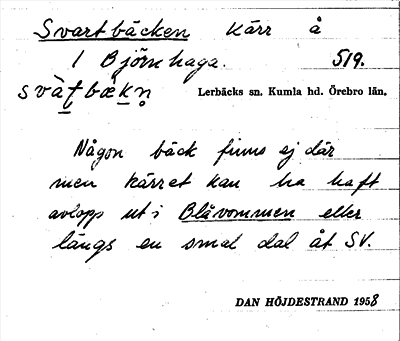 Svartbäcken kärr å
1 Björnhaga. 519.
svàt̠bækn̥ Lerbäcks sn. Kumla hd. Örebro län.
Någon bäck finns ej där
men kärret kan ha haft
avlopp ut i Blåvommen eller
längs en smal dal åt SV.
DAN HÖJDESTRAND 1958